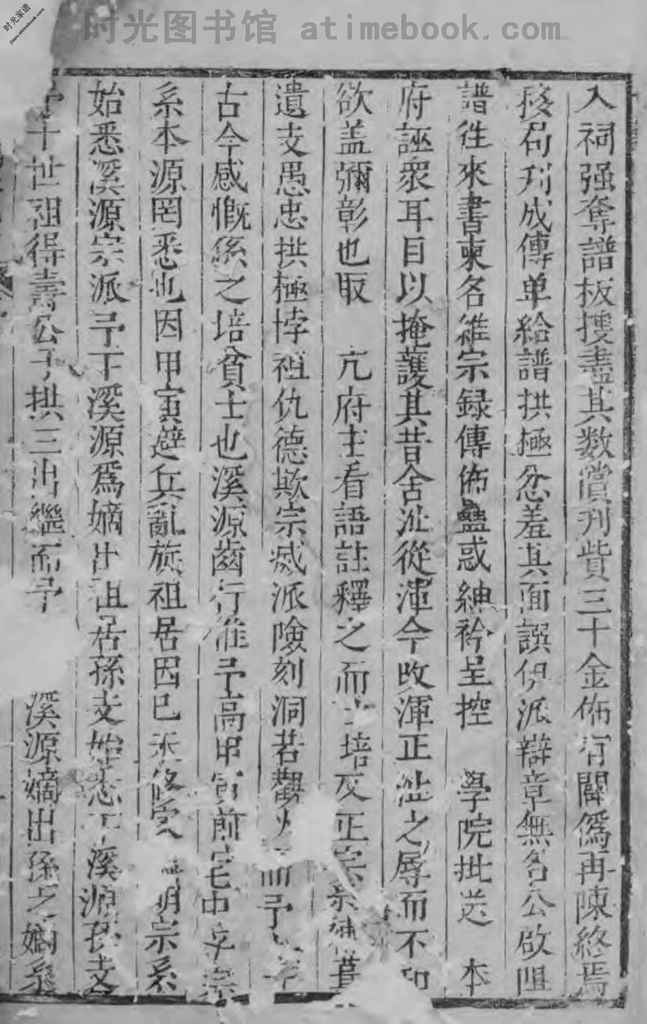 时光图书馆 atimebook.com
时光家谱
www.atimebook.com
入祠强奪譜板摟盡其数償刋費三十金佈有關爲再陳終焉
刋成傳单給譜拱極忿羞其面誤伊派辯章無名公啟阻
譜徃來書柬名維宗録傳佈蠱惑紳衿呈控 學院批送 本
府誣衆耳目以掩護其昔舍沚從渾今改渾正沚之辱而不知
欲盖彌彰也取 亢府主看語註釋之而士培反正宗系
遺支愚忠拱極悖祖仇德欺宗烕派險刻洞若觀火而予
古今感慨係之培貧士也溪源齒行惟予高甲寅前宅中
系本源罔悉也因甲寅避兵亂族祖居因巳未修 明宗系
始悉溪源宗派予下溪源爲嫡出祖居孫支始悉下溪源孫支
予十世祖得壽公子拱三出繼而予 溪源嫡出孫之嫡系